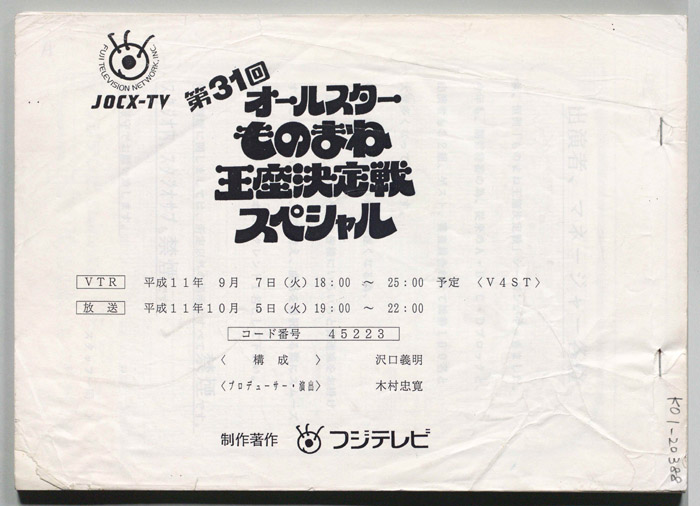 FUJI TELEVISION NETWORK, INC.
JOCX-TV
第31回
オールスター
ものまね
王座決定戦
スペシャル
VTR 平成11年 9月 7日(火)18:00 ～ 25:00 予定 〈V4ST〉
放送 平成11年10月 5日(火)19:00 ～ 22:00
コード番号 45223
〈 構成 〉 沢口義明
〈プロデューサー・演出〉 木村忠寛
制作著作 フジテレビ
K01-20388